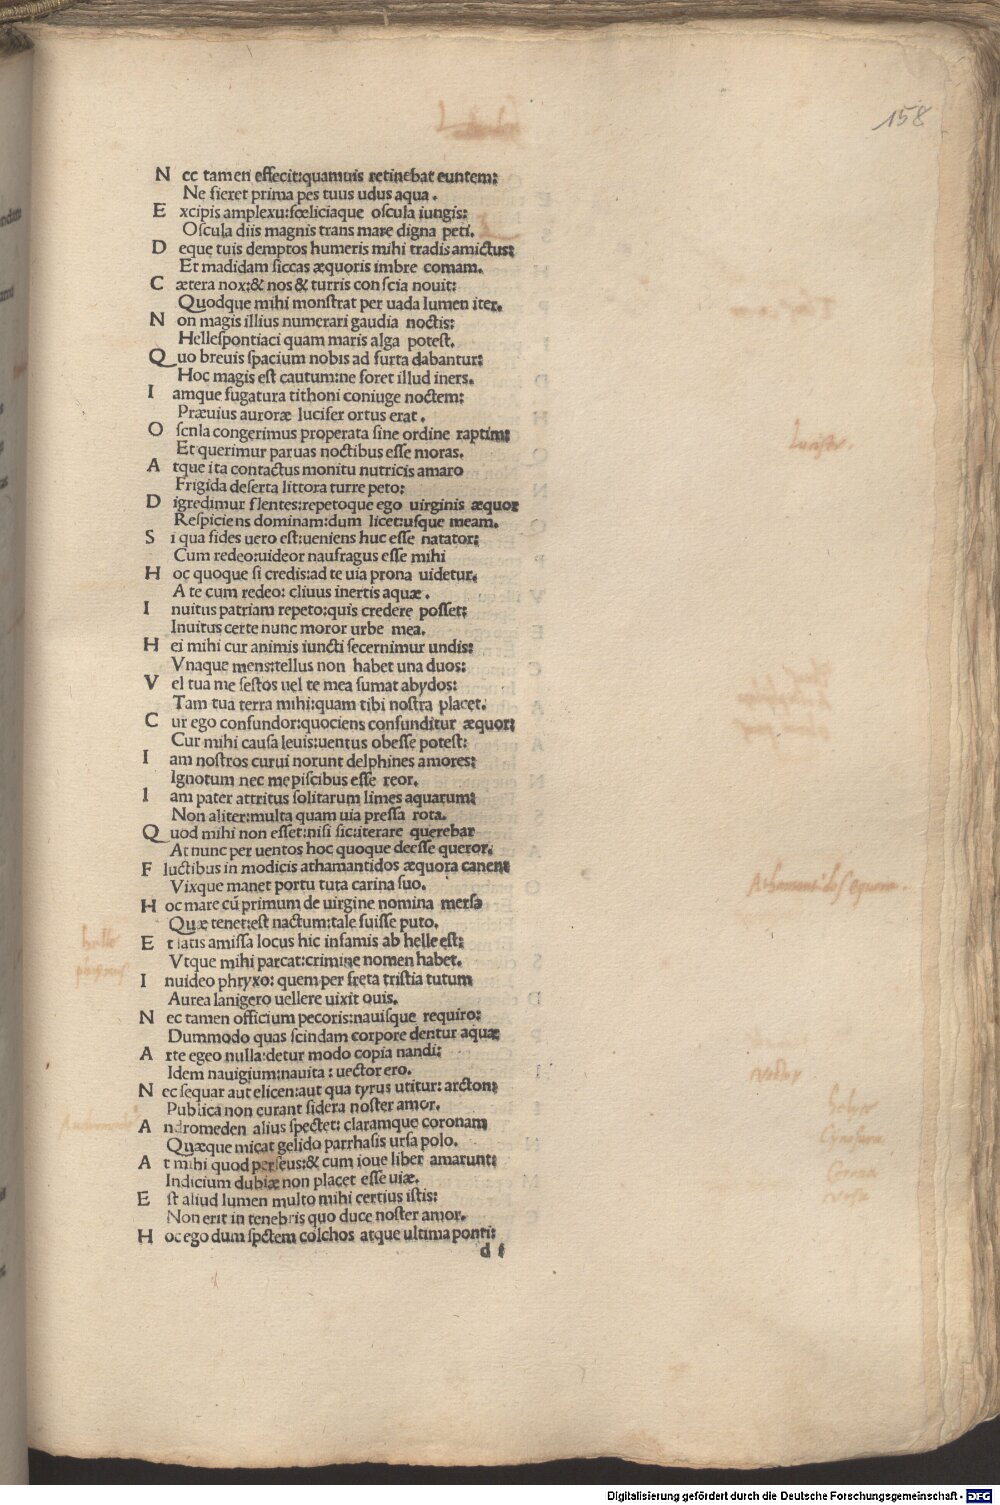 158
N ec tamen effecit:quamuis retinebat euntem:
Ne fieret prima pes tuus udus aqua.
E xcipis amplexu:fœliciaque oscula iungis:
Oscula diis magnis trans mare digna peti.
D eque tuis demptos humeris mihi tradis amictus:
Et madidam siccas æquoris imbre comam.
C ætera nox:& nos & turris conscia nouit:
Quodque mihi monstrat per uada lumen iter.
N on magis illius numerari gaudia noctis:
Hellespontiaci quam maris alga potest.
Q uo breuis spacium nobis ad furta dabantur:
Hoc magis est cautum:ne foret illud iners.
I amque fugatura tithoni coniuge noctem:
Præuius auroræ lucifer ortus erat.
O scnla congerimus properata sine ordine raptim:
Et querimur paruas noctibus esse moras.
A tque ita contactus monitu nutricis amaro
Frigida deserta littora turre peto:
D igredimur flentes:repetoque ego uirginis æquor
Respiciens dominam:dum licet:usque meam.
S i qua fides uero est:ueniens huc esse natator:
Cum redeo:uideor naufragus esse mihi
H oc quoque si credis:ad te uia prona uidetur.
A te cum redeo: cliuus inertis aquæ.
I nuitus patriam repeto:quis credere posset:
Inuitus certe nunc moror urbe mea.
H ei mihi cur animis iuncti secernimur undis:
Vnaque mens:tellus non habet una duos:
V el tua me sestos uel te mea sumat abydos:
Tam tua terra mihi:quam tibi nostra placet.
C ur ego confundor:quociens confunditur æquor:
Cur mihi causa leuis:uentus obesse potest:
I am nostros curui norunt delphines amores:
Ignotum nec me piscibus esse reor.
I am pater attritus solitarum limes aquarum:
Non aliter:multa quam uia pressa rota.
Q uod mihi non esset:nisi sic:iterare querebar
At nunc per uentos hoc quoque deesse queror.
F luctibus in modicis athamantidos æquora canent
Vixque manet portu tuta carina suo.
H oc mare cū primum de uirgine nomina mersa
Quæ tenet:est nactum:tale fuisse puto.
E t satis amissa locus hic infamis ab helle est:
Vtque mihi parcat:crimine nomen habet.
I nuideo phryxo: quem per freta tristia tutum
Aurea lanigero uellere uixit ouis.
N ec tamen officium pecoris:nauisque requiro:
Dummodo quas scindam corpore dentur aquæ
A rte egeo nulla:detur modo copia nandi:
Idem nauigium:nauita: uector ero.
N ec sequar aut elicen:aut qua tyrus utitur: arcton:
Publica non curant sidera noster amor.
A ndromeden alius spectet: claramque coronam
Quæque micat gelido parrhasis ursa polo.
A t mihi quod perseus:& cum ioue liber amarunt:
Indicium dubiæ non placet esse uiæ.
E st aliud lumen multo mihi certius istis:
Non erit in tenebris quo duce noster amor.
H oc ego dum spctem colchos atque ultima ponti:
d f
Lucifer.
Athamantidos equora.
helle
phryxus
vector
Andromede
helyce
Cynosura
Corona
vrsa
Digitalisierung gefördert durch die Deutsche Forschungsgemeinschaft - DFG